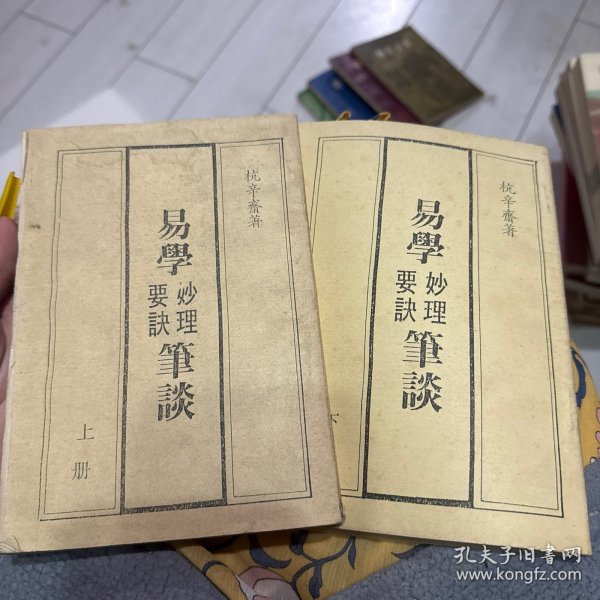 杭辛齋著
易學
妙理
要訣
筆談
上册
杭辛齋著
易學
妙理
要訣
筆談
孔夫子旧書网
www.kongfz.com